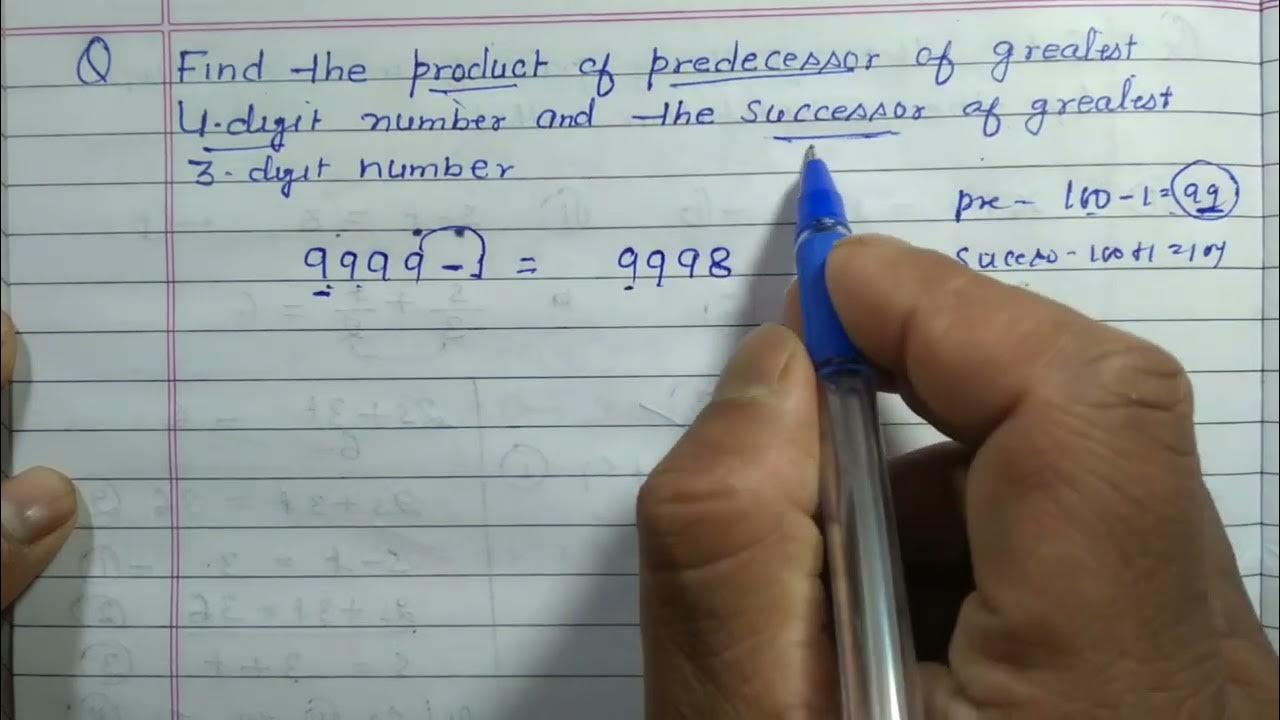 Q Find the product of predecessor of greatest
4-digit number and the successor of greatest
3-digit number
pre - 100-1=99
succeso - 100+1=101
9999-1 = 9998